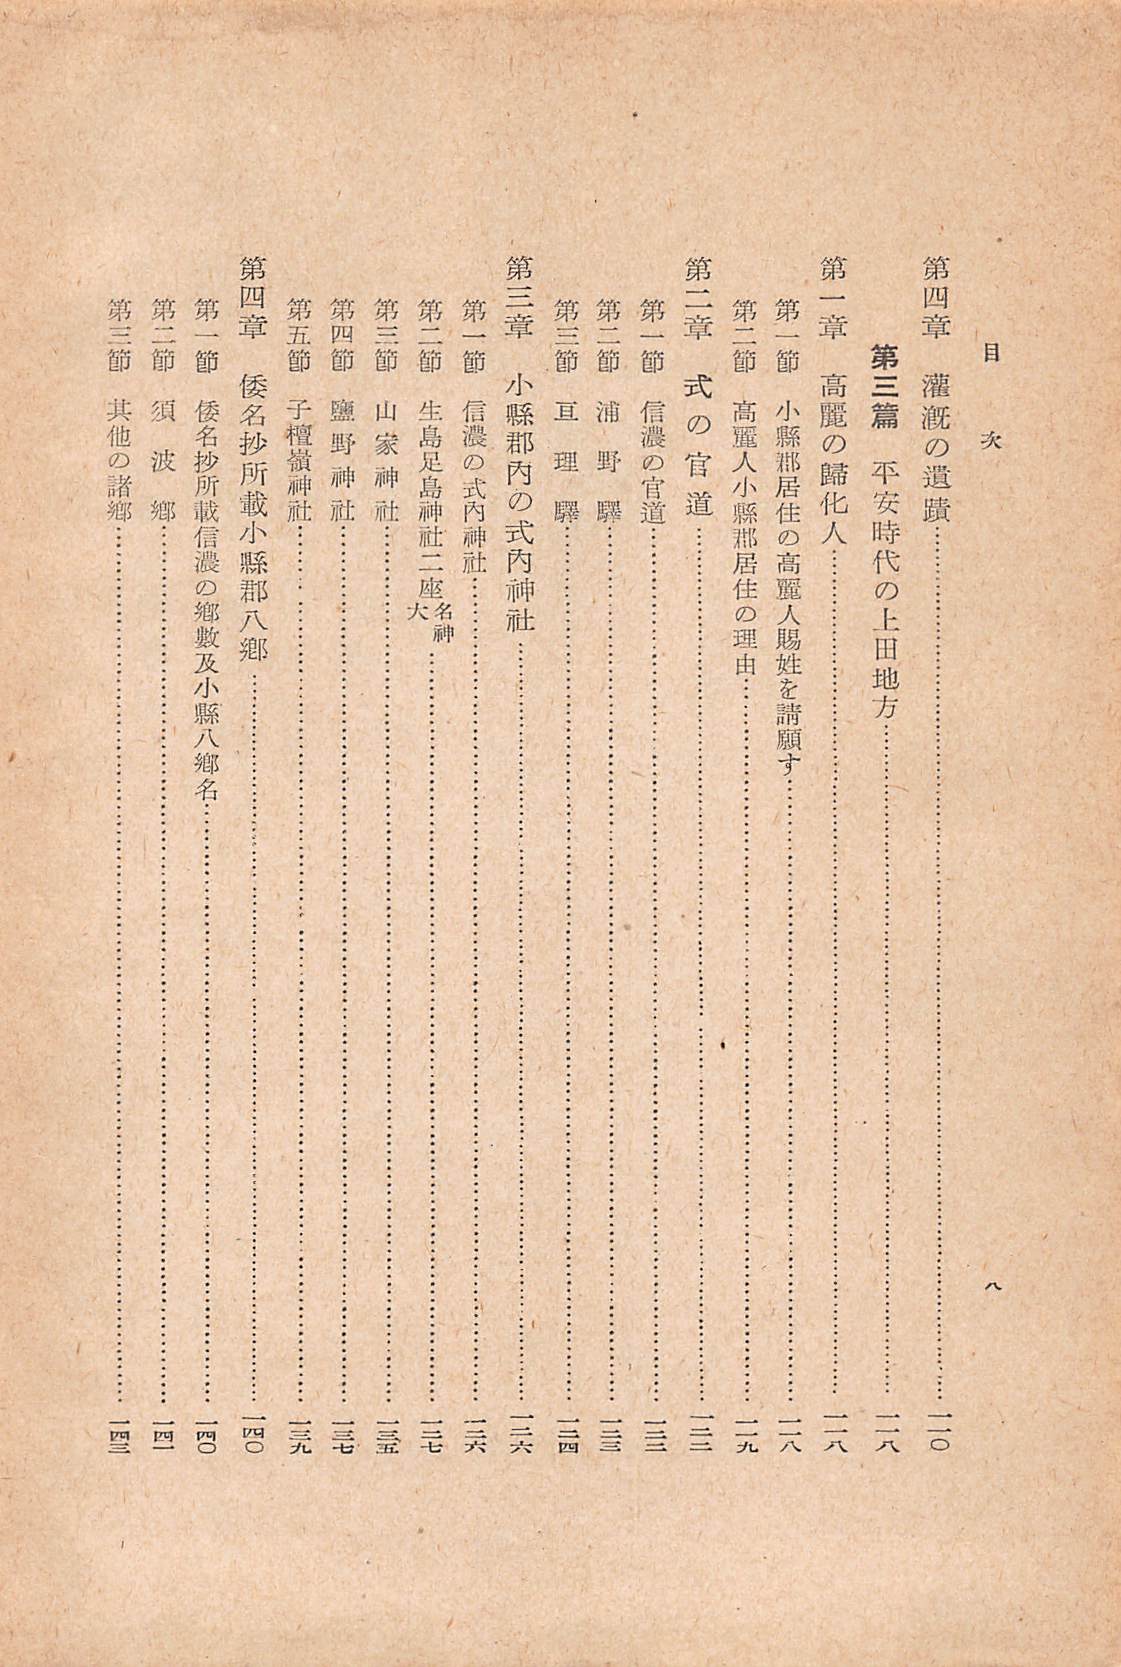 目次　八
第四章　灌漑の遺蹟……一一〇
第三篇　平安時代の上田地方……一一八
第一章　高麗の歸化人……一一八
第一節　小縣郡居住の高麗人賜姓を請願す……一一八
第二節　高麗人小縣郡居住の理由……一一九
第二章　式の官道……一二二
第一節　信濃の官道……一二二
第二節　浦野驛……一二三
第三節　亘理驛……一二四
第三章　小縣郡內の式內神社……一二六
第一節　信濃の式內神社……一二六
第二節　生島足島神社二座名神大……一二七
第三節　山家神社……一三五
第四節　鹽野神社……一三七
第五節　子檀嶺神社……一三九
第四章　倭名抄所載小縣郡八鄕……一四〇
第一節　倭名抄所載信濃の鄕數及小縣八鄕名……一四〇
第二節　須波鄕……一四一
第三節　其他の諸鄕……一四三